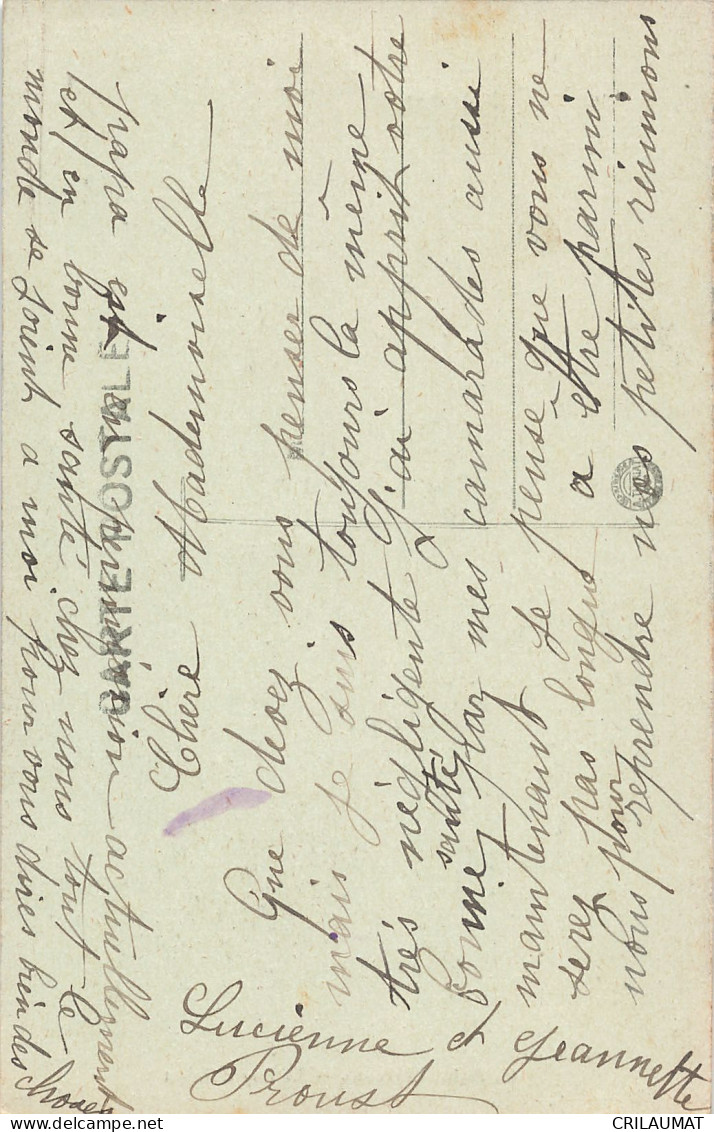 CARTE POSTALE
Chère Mademoiselle
Que devez vous penser de moi
mais je suis toujours la même
très négligente J'ai apprit votre
bonne santé par mes camarades aussi
maintenant je pense que vous ne
serez pas longue a être parmi
nous pour reprendre nos petites reunions
papa est en permission actuellement
et en bonne santé chez nous tout le
monde se joint a moi pour vous dires bien des choses
Lucienne et Jeannette
Proust
CRILAUMAT